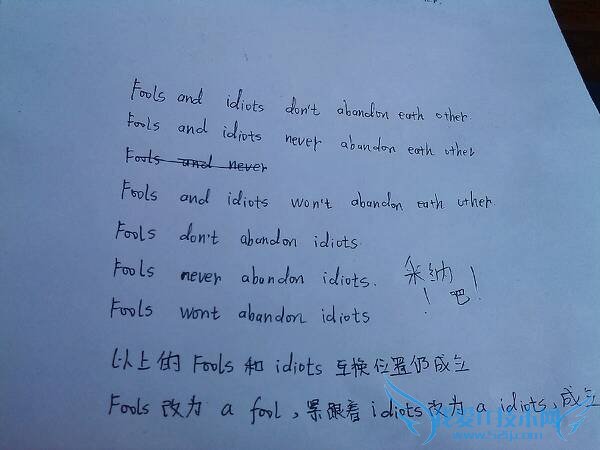 Fools and idiots don't abandon eath other.
Fools and idiots never abandon eath other
Fools and never
Fools and idiots won't abandon eath other.
Fools don't abandon idiots.
Fools never abandon idiots. 采纳
Fools wont abandon idiots ! 吧!
以上的 Fools 和 idiots 互换位置仍成立
Fools 改为 a fool, 紧跟着 idiots 改为 a idiots, 成立
www.52ij.com